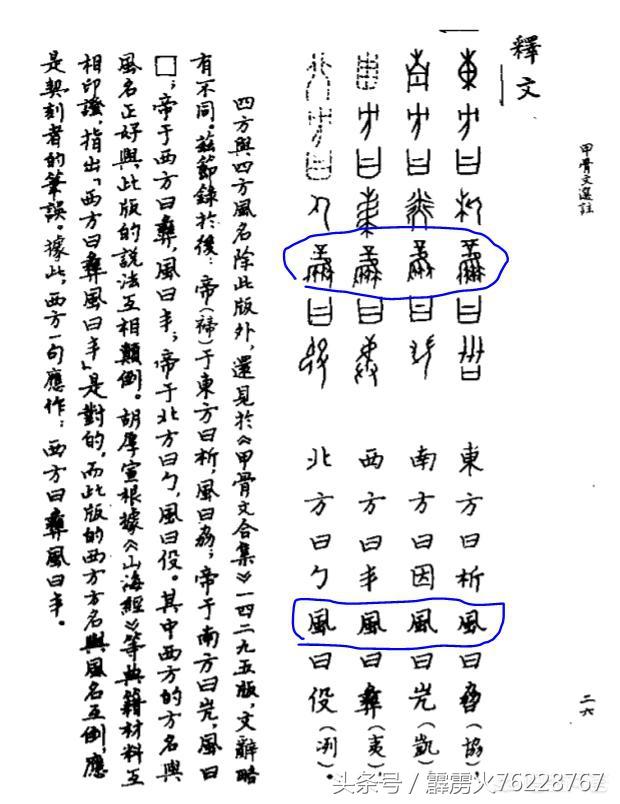 甲骨文選註
二六
釋文
東方曰析風曰(協)。
南方曰因風曰(凱)。
西方曰丰風曰彝(夷)。
北方曰勹風曰伇(冽)。
四方與四方風名除此版外,還見於《甲骨文合集》一四二九五版,文辭略
有不同。茲節錄於後:帝(禘)于東方曰析,風曰劦;帝于南方曰,風曰
□;帝于西方曰彝,風曰丰;帝于北方曰勹,風曰伇。其中西方的方名與
風名正好與此版的說法互相顛倒。胡厚宣根據《山海經》等典籍材料互
相印證,指出「西方曰彝風曰丰」是對的,而此版的西方方名與風名互倒,應
是契刻者的筆誤。據此,西方一句應作:西方曰彝風曰丰。
头条号 / 霹雳火76228767